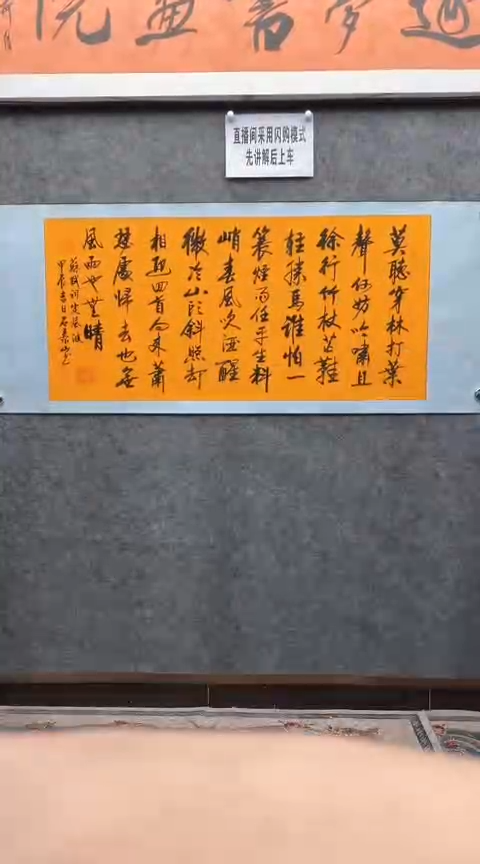 書画院
直播间采用闪购模式
先讲解后上车
莫聽穿林打葉
聲何妨吟嘯且
徐行竹杖芒鞋
輕勝馬誰怕一
蓑煙雨任平生料
峭春風吹酒醒
微冷山頭斜照却
相迎回首向來蕭
瑟處歸去也無
風雨也無晴
蘇軾詞定風波
甲辰吉日